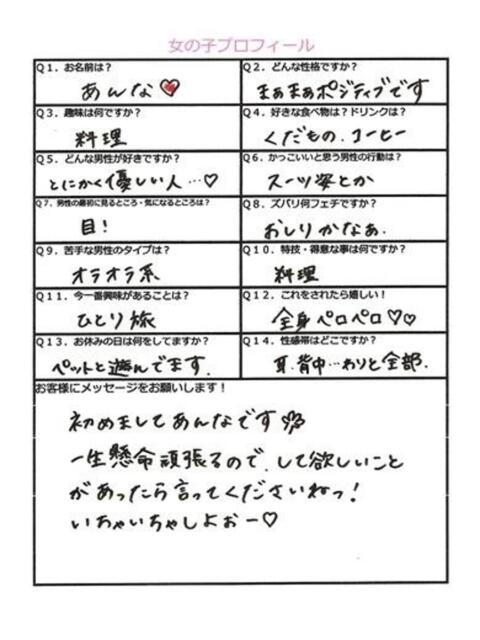 女の子プロフィール
Q1．お名前は？
あんな♥
Q2．どんな性格ですか？
まぁまぁポジティブです
Q3．趣味は何ですか？
料理
Q4．好きな食べ物は？ドリンクは？
くだもの．コーヒー
Q5．どんな男性が好きですか？
とにかく優しい人…♡
Q6．かっこいいと思う男性の行動は？
スーツ姿とか
Q7．男性の最初に見るところ・気になるところは？
目！
Q8．ズバリ何フェチですか？
おしりかなぁ．
Q9．苦手な男性のタイプは？
オラオラ系
Q10．特技・得意な事は何ですか？
料理
Q11．今一番興味があることは？
ひとり旅
Q12．これをされたら嬉しい！
全身ペロペロ♡♡
Q13．お休みの日は何をしてますか？
ペットと遊んでます．
Q14．性感帯はどこですか？
耳．背中…わりと全部．
お客様にメッセージをお願いします！
初めましてあんなです
一生懸命頑張るので．して欲しいこと
があったら言ってくださいねっ！
いちゃいちゃしよおー♡